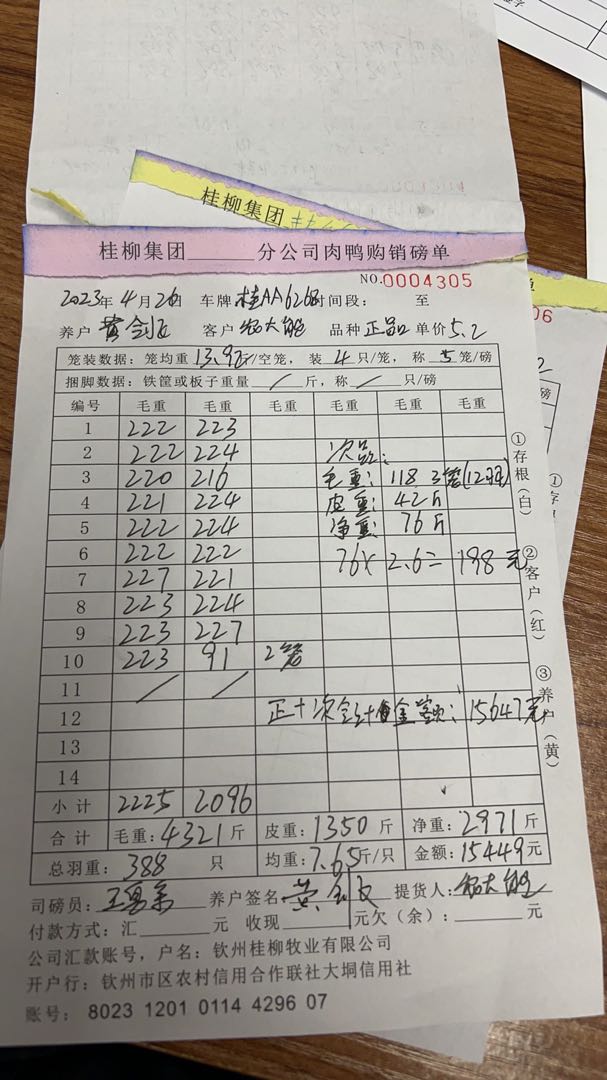 桂柳集团
桂柳集团______分公司肉鸭购销磅单
NO.0004305
06
2023年4月26日 车牌 桂AA626 时间段： 至
养户 黄剑 客户 大能 品种 正品 单价5.2
笼装数据：笼均重13.9斤/空笼，装4只/笼，称5笼/磅
捆脚数据：铁筐或板子重量/斤，称/只/磅
编号 毛重 毛重 毛重 毛重 毛重 毛重
1 222 223
2 222 224 次品：
3 220 216 毛重：118 3笼(12羽)
4 221 224 皮重：42斤
5 222 224 净重：76斤
6 222 222 76×2.6=198元
7 227 221
8 223 224
9 223 227
10 223 91 2笼
11 / /
12 正+次合计金额：15647元
13
14
小计 2225 2096
合计 毛重：4321斤 皮重：1350斤 净重：2971斤
总羽重：388只 均重：7.65斤/只 金额：15449元
司磅员：王 养户签名 黄 提货人： 大能
付款方式：汇______元 收现______元欠（余）：______元
公司汇款账号，户名：钦州桂柳牧业有限公司
开户行：钦州市区农村信用合作联社大垌信用社
账号：8023 1201 0114 4296 07
①存根（白）
②客户（红）
③养户（黄）